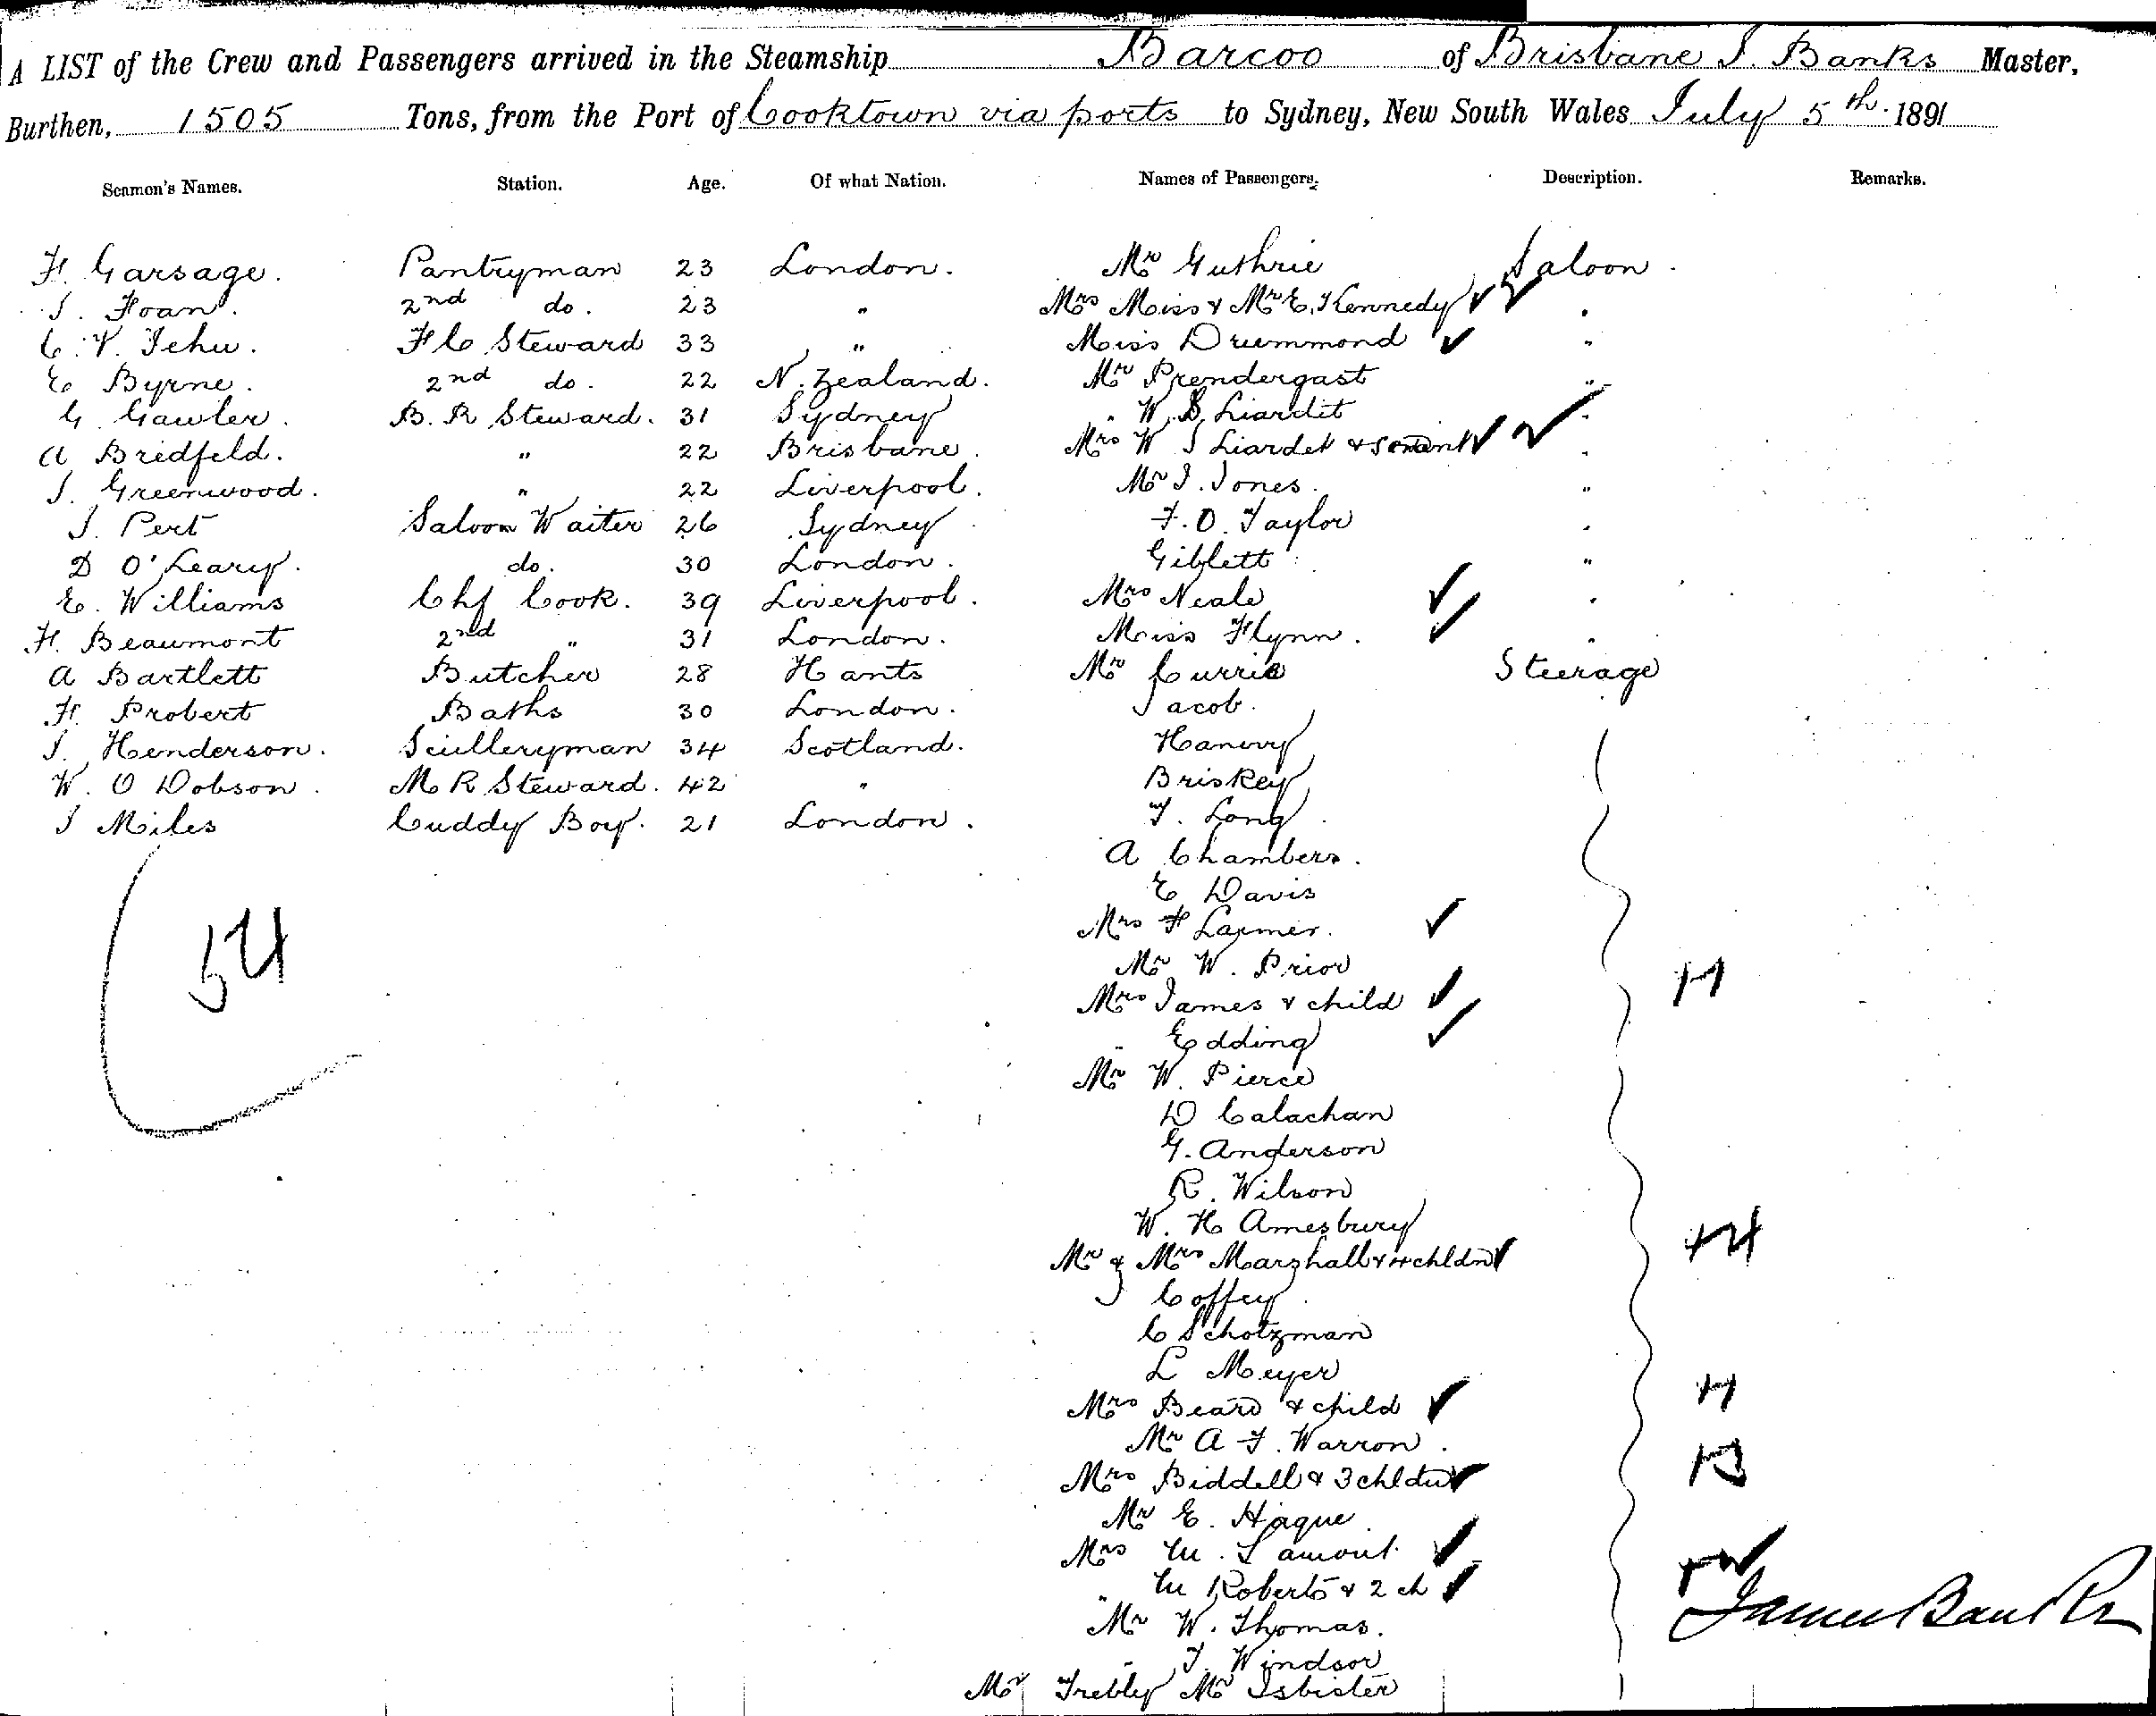 A LIST of the Crew and Passengers arrived in the Steamship Barcoo of Brisbane J. Banks Master,
Burthen, 1505 Tons, from the Port of Cooktown via ports to Sydney, New South Wales July 5th 1891
Seamen's Names. Station. Age. Of what Nation. Names of Passengers. Description. Remarks.
H. Garsage. Pantryman 23 London. Mr Guthrie Saloon.
J. Hoan. 2nd do. 23 " Mrs Miss & Mr E. Kennedy "
C. V. Jehu. F C Steward 33 " Miss Drummond "
E Byrne. 2nd do. 22 N. Zealand. Mr Prendergast "
G. Gawler. B. R Steward. 31 Sydney " W. S. Liardit "
A Bredfeld. " 22 Brisbane. Mrs W S Liardet & servant "
J. Greenwood. " 22 Liverpool. Mr J. Jones. "
J. Pert Saloon Waiter 26 Sydney F. O. Taylor "
D O'Leary. do. 30 London. Giblett "
E. Williams Chf Cook. 39 Liverpool. Mrs Neale "
H. Beaumont 2nd " 31 London. Miss Flynn. "
A Bartlett Butcher 28 Hants Mr Currie Steerage
H. Probert Baths 30 London. Jacob.
J. Henderson. Sculleryman 34 Scotland.
W. O Dobson. M R Steward. 42 " Briskey
J Miles Cuddy Boy. 21 London. T. Long
A Chambers.
E Davis
54
Mrs H Larmer.
Mr W. Prior
Mrs James & child
" Edding
Mr W. Pierce
D Calachan
G. Anderson
R. Wilson
W. H Amesbury
Mr & Mrs Marshall & 4 chldn
J Coffey
C Schotzman
L Meyer
Mrs Beard & child
Mr A F. Warron.
Mrs Biddell & 3 chldn
Mr E. Hague
Mrs M. Lamont.
" M Roberts & 2 ch
James Banks
Mr W. Thomas.
" T. Windsor
Mr Trebly Mr Isbister